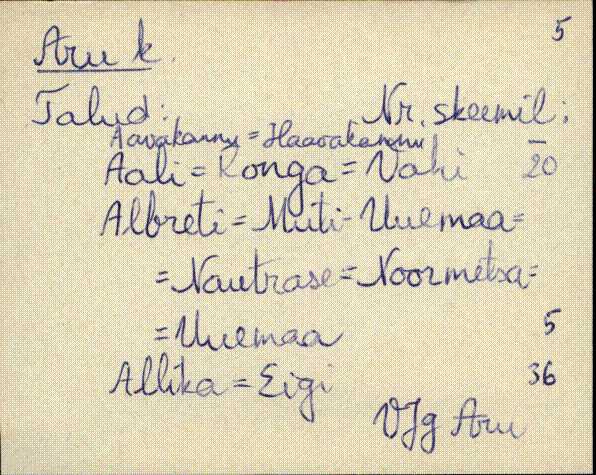 5
Aru k.
Talud: Nr. skeemil:
Aavakannu = Haavakannu –
Aali = Konga = Vahi 20
Albreti = Muti - Uuemaa =
= Nautrase = Noormetsa =
= Uuemaa 5
Allika = Eigi 36
VJg Aru